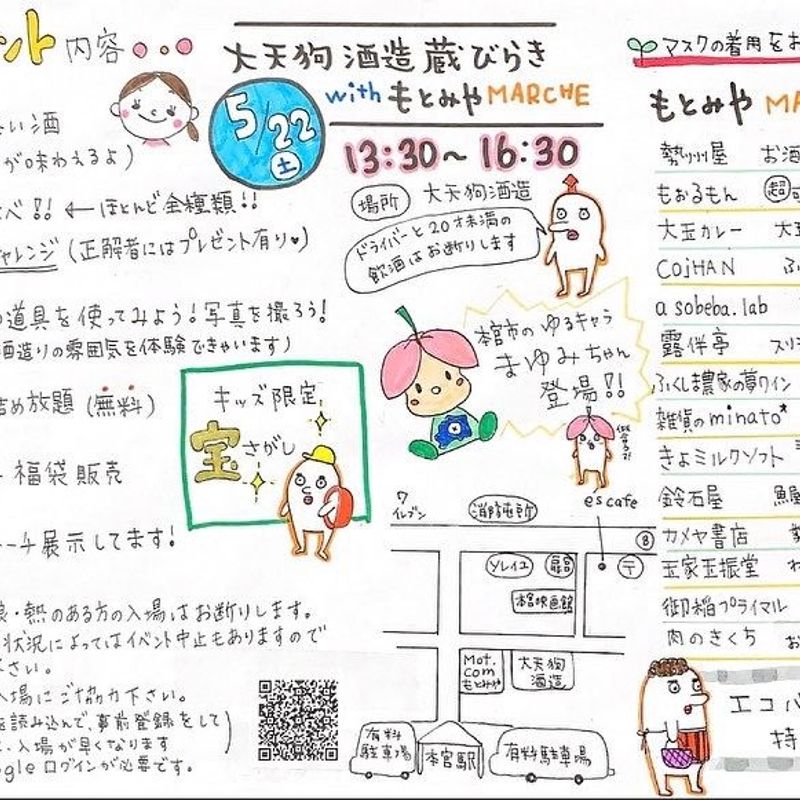 ント 内容
大天狗酒造 蔵びらき
with もとみや MARCHE
5/22
土
13:30～16:30
場所 大天狗酒造
ドライバーと20才未満の
飲酒はお断りします
い酒
が味わえるよ)
べ!! ←ほとんど全種類!!
ャレンジ (正解者にはプレゼント有り♥)
の道具を使ってみよう!写真を撮ろう!
酒造りの雰囲気を体験できゃいます)
詰め放題 (無料)
福袋販売
ーチ展示してます!
キッズ限定
宝さがし
本宮市のゆるキャラ
まゆみちゃん
登場!!
・熱のある方の入場はお断りします。
状況によってはイベント中止もありますので
さい。
入場にご協力下さい。
を読み込んで、事前登録をして
、入場が早くなります
ogle ログインが必要です。
7
イレブン
消防屯所
es cafe
8
ソレイユ
〒
本宮映画館
Mot.
com
もとみや
大天狗
酒造
有料
駐車場
本宮駅
有料駐車場
マスクの着用をお
もとみや MA
勢州屋 お酒
もおるもん 超
大玉カレー 大玉
CojHAN ふ
a sobeba.lab
露伴亭 スリラ
ふくしま農家の夢ワイン
雑貨のminato*
きよミルクソフト
鈴石屋 魚屋
カメヤ書店
玉家玉振堂 わ
御稲プライマル
肉のきくち お
エコバ
持